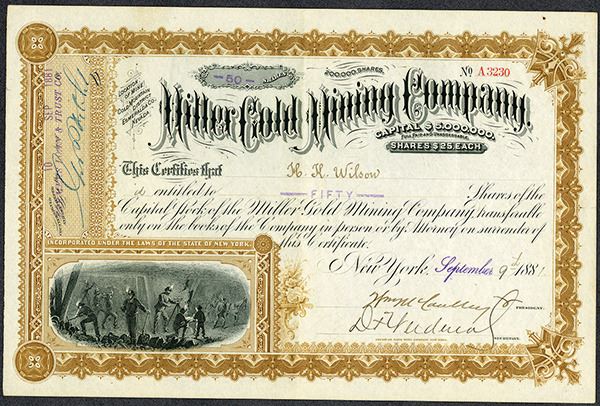 50 SHARES
200,000 SHARES.
No A3230
Miller Gold Mining Company.
CAPITAL $5,000,000.
SHARES $25 EACH
This Certifies that H. H. Wilson
is entitled to FIFTY Shares of the
Capital Stock of the Miller Gold Mining Company, transferable
only on the books of the Company in person or by Attorney on surrender of
this Certificate.
New York, September 9th 1881
PRESIDENT.
SECRETARY.
INCORPORATED UNDER THE LAWS OF THE STATE OF NEW YORK.
10 SEP 1881
LOAN & TRUST CO.